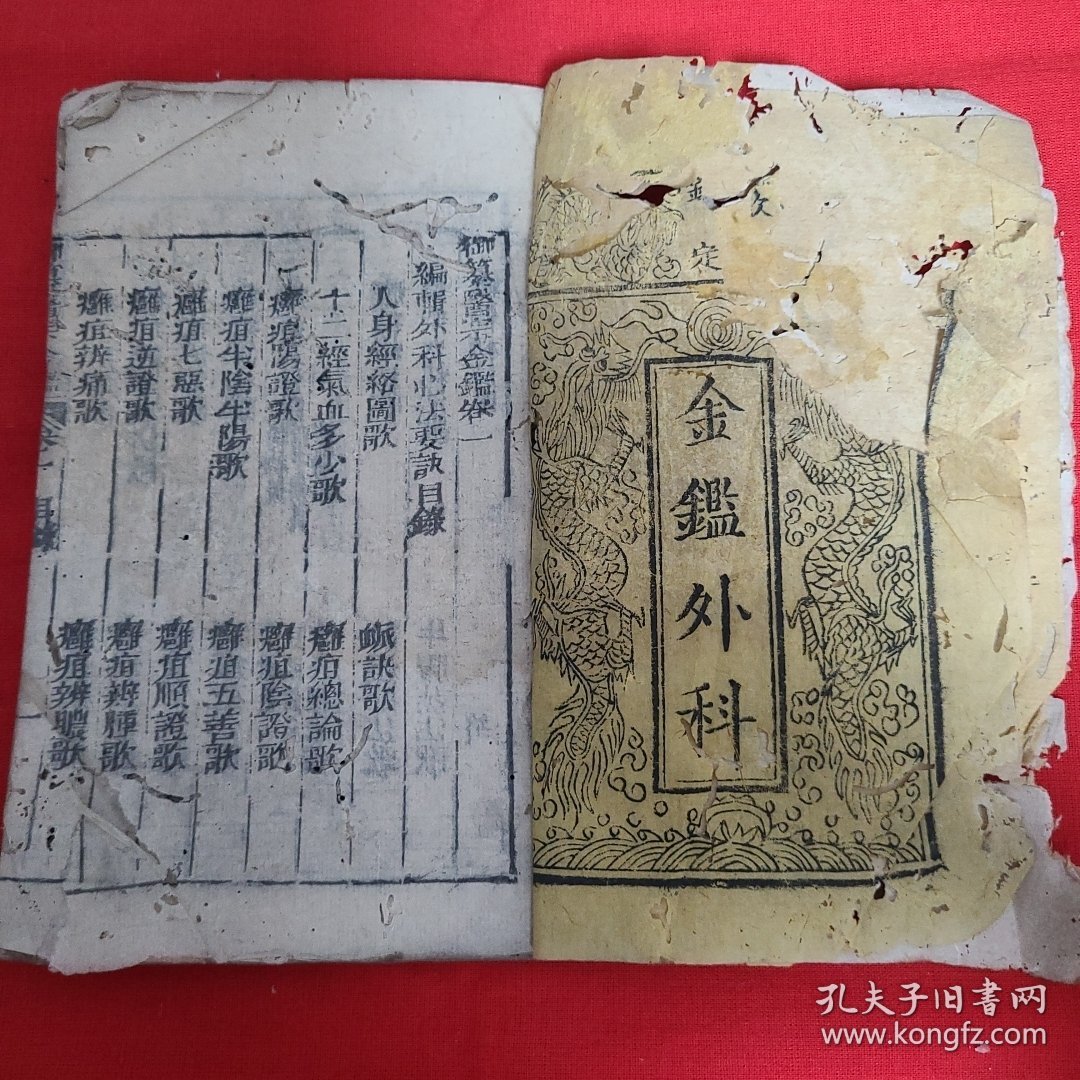 定
金鑑外科
御纂醫宗金鑑卷一
編輯外科心法要訣目錄
人身經絡圖歌
脈訣歌
十二經氣血多少歌
癰疽總論歌
癰疽陽證歌
癰疽陰證歌
癰疽半陰半陽歌
癰疽五善歌
癰疽七惡歌
癰疽順證歌
癰疽逆證歌
癰疽辨腫歌
癰疽辨痛歌
癰疽辨膿歌
目錄
孔夫子旧書网
www.kongfz.com